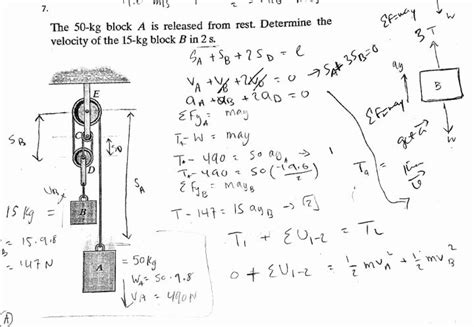 7.
The 50-kg block A is released from rest. Determine the
velocity of the 15-kg block B in 2 s.
S_A + S_B + 2S_D = l
V_A + V_B + 2V_D = 0 → S_A + 3S_B = 0
a_A + a_B + 2a_D = 0
ΣF_yA = may
T_A - W = may
T_A - 490 = 50 ay_A → 1
T_A - 490 = 50 (-19.6/2)
ΣF_yB = may_B
T - 147 = 15 ay_B → [2]
T_1 + ΣU_1-2 = T_2
0 + ΣU_1-2 = 1/2 mv_A² + 1/2 mv_B²
ΣF=may
3T
W
ay
B
ΣF=may
W
T_A =
E
C
D
S_B
S_D
S_A
B
A
15 kg =
= 15·9.8
= 147N
= 50kg
W_A = 50·9.8
= 490N
A